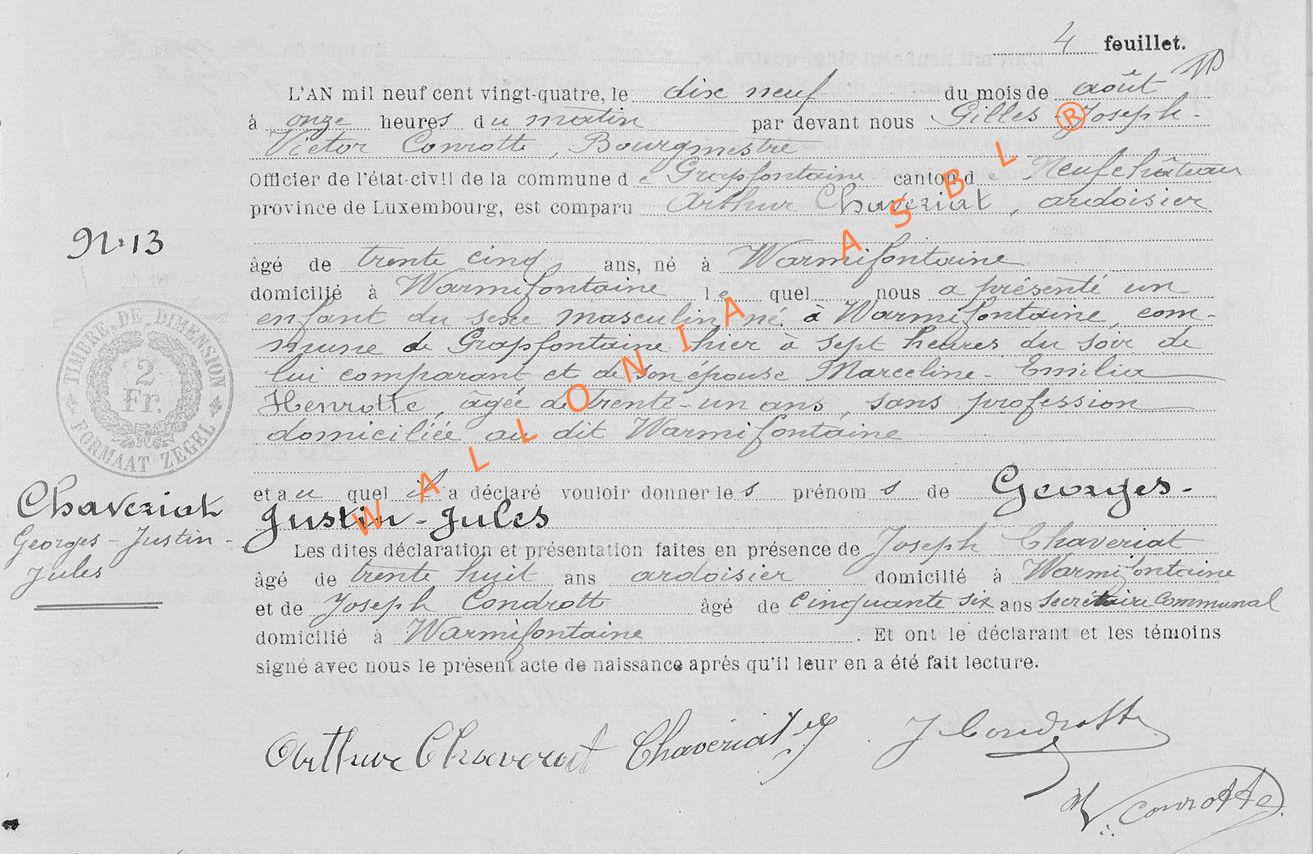 4 feuillet.
L'AN mil neuf cent vingt-quatre, le dix neuf du mois de août
à onze heures du matin par devant nous Gilles-Joseph-
Victor Conrotte, Bourgmestre
Officier de l'état-civil de la commune de Grapfontaine canton de Neufchâteau
province de Luxembourg, est comparu Arthur Chaveriat, ardoisier
N° 13
âgé de trente cinq ans, né à Warmifontaine
domicilié à Warmifontaine lequel nous a présenté un
enfant du sexe masculin né à Warmifontaine, com-
mune de Grapfontaine hier à sept heures du soir de
lui comparant et de son épouse Marceline-Emilia
Henrotte, agée de trente-un ans, sans profession
domiciliée au dit Warmifontaine
TIMBRE DE DIMENSION
2
Fr.
FORMAAT ZEGEL
et au quel il a déclaré vouloir donner les prénoms de Georges-
Justin-Jules
Chaveriat
Georges-Justin-
Jules
Les dites déclaration et présentation faites en présence de Joseph Chaveriat
âgé de trente huit ans ardoisier domicilié à Warmifontaine
et de Joseph Condrott âgé de cinquante six ans secrétaire communal
domicilié à Warmifontaine. Et ont le déclarant et les témoins
signé avec nous le présent acte de naissance après qu'il leur en a été fait lecture.
Arthur Chaveriat Chaveriat J Condrotte
V. Conrotte
WALLONIA ASBL ®